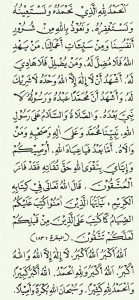 الحمد لله الذي نحمده ونستعينه
ونستغفره ونعوذ بالله من شرور
أنفسنا ومن سيئات أعمالنا من يهد
الله فلا مضل له ومن يضلل فلا هادي
له أشهد أن لا إله إلا الله وحده لا شريك
له وأشهد أن محمدا عبده ورسوله لا
نبي بعده والصلاة والسلام على رسول
الله نبينا محمد وعلى آله وصحبه ومن
والاه أما بعد فيا عباد الله أوصيكم
وإياي بتقوى الله حق تقاته فقد فاز
المتقون قال الله تعالى في كتابه
الكريم يا أيها الذين آمنوا كتب عليكم
الصيام كما كتب على الذين من قبلكم
لعلكم تتقون
الله أكبر الله أكبر لا إله إلا الله والله
أكبر الله أكبر ولله الحمد الله أكبر كبيرا
والحمد لله كثيرا وسبحان الله بكرة وأصيلا